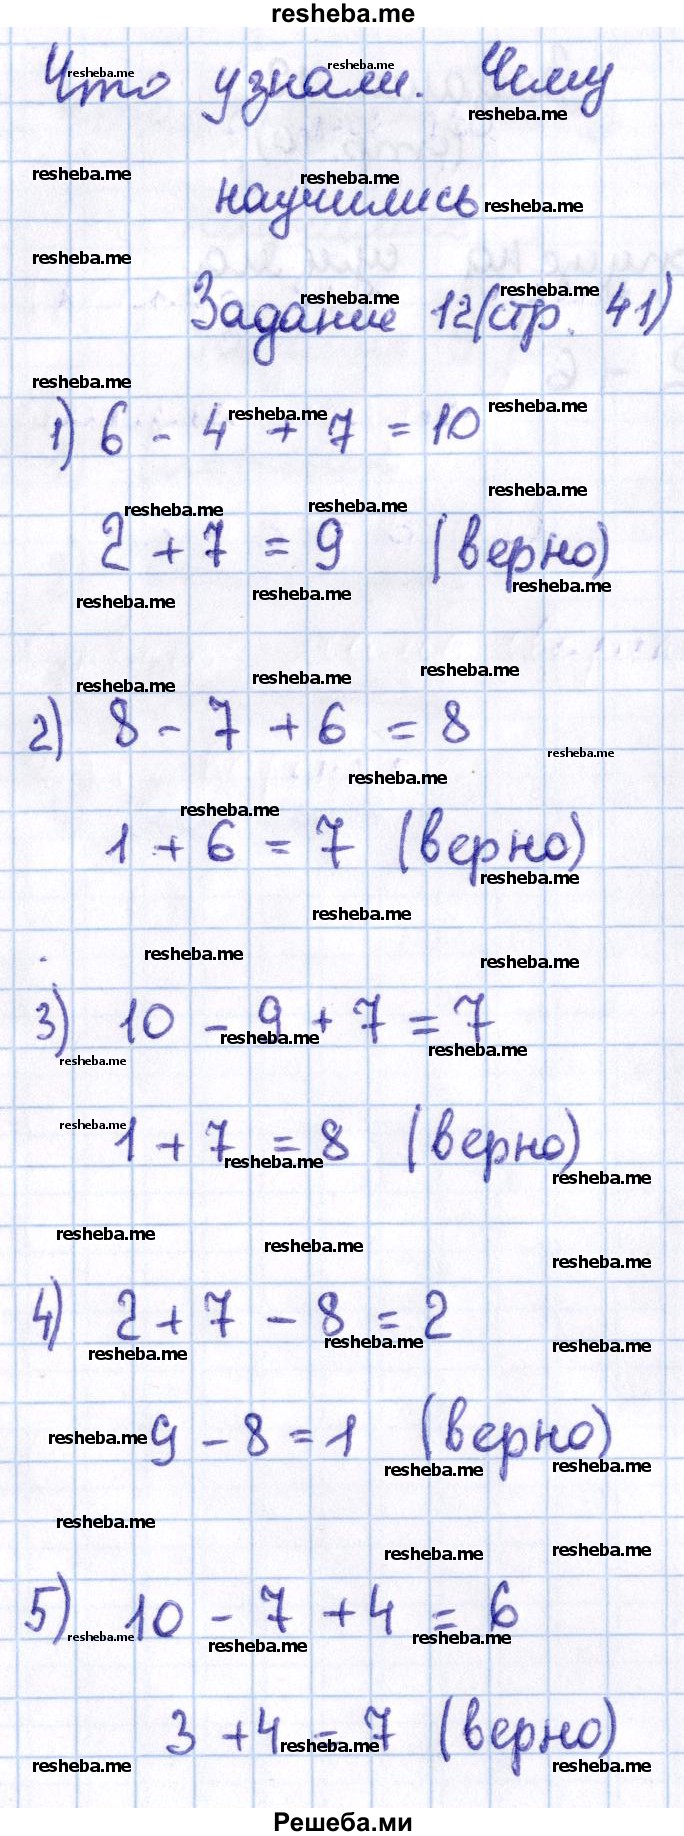 resheba.me
Что узнали. Чему
научились
Задание 12 (стр. 41)
1) 6 - 4 + 7 = 10
2 + 7 = 9 (верно)
2) 8 - 7 + 6 = 8
1 + 6 = 7 (верно)
3) 10 - 9 + 7 = 7
1 + 7 = 8 (верно)
4) 2 + 7 - 8 = 2
9 - 8 = 1 (верно)
5) 10 - 7 + 4 = 6
3 + 4 = 7 (верно)
Решеба.ми